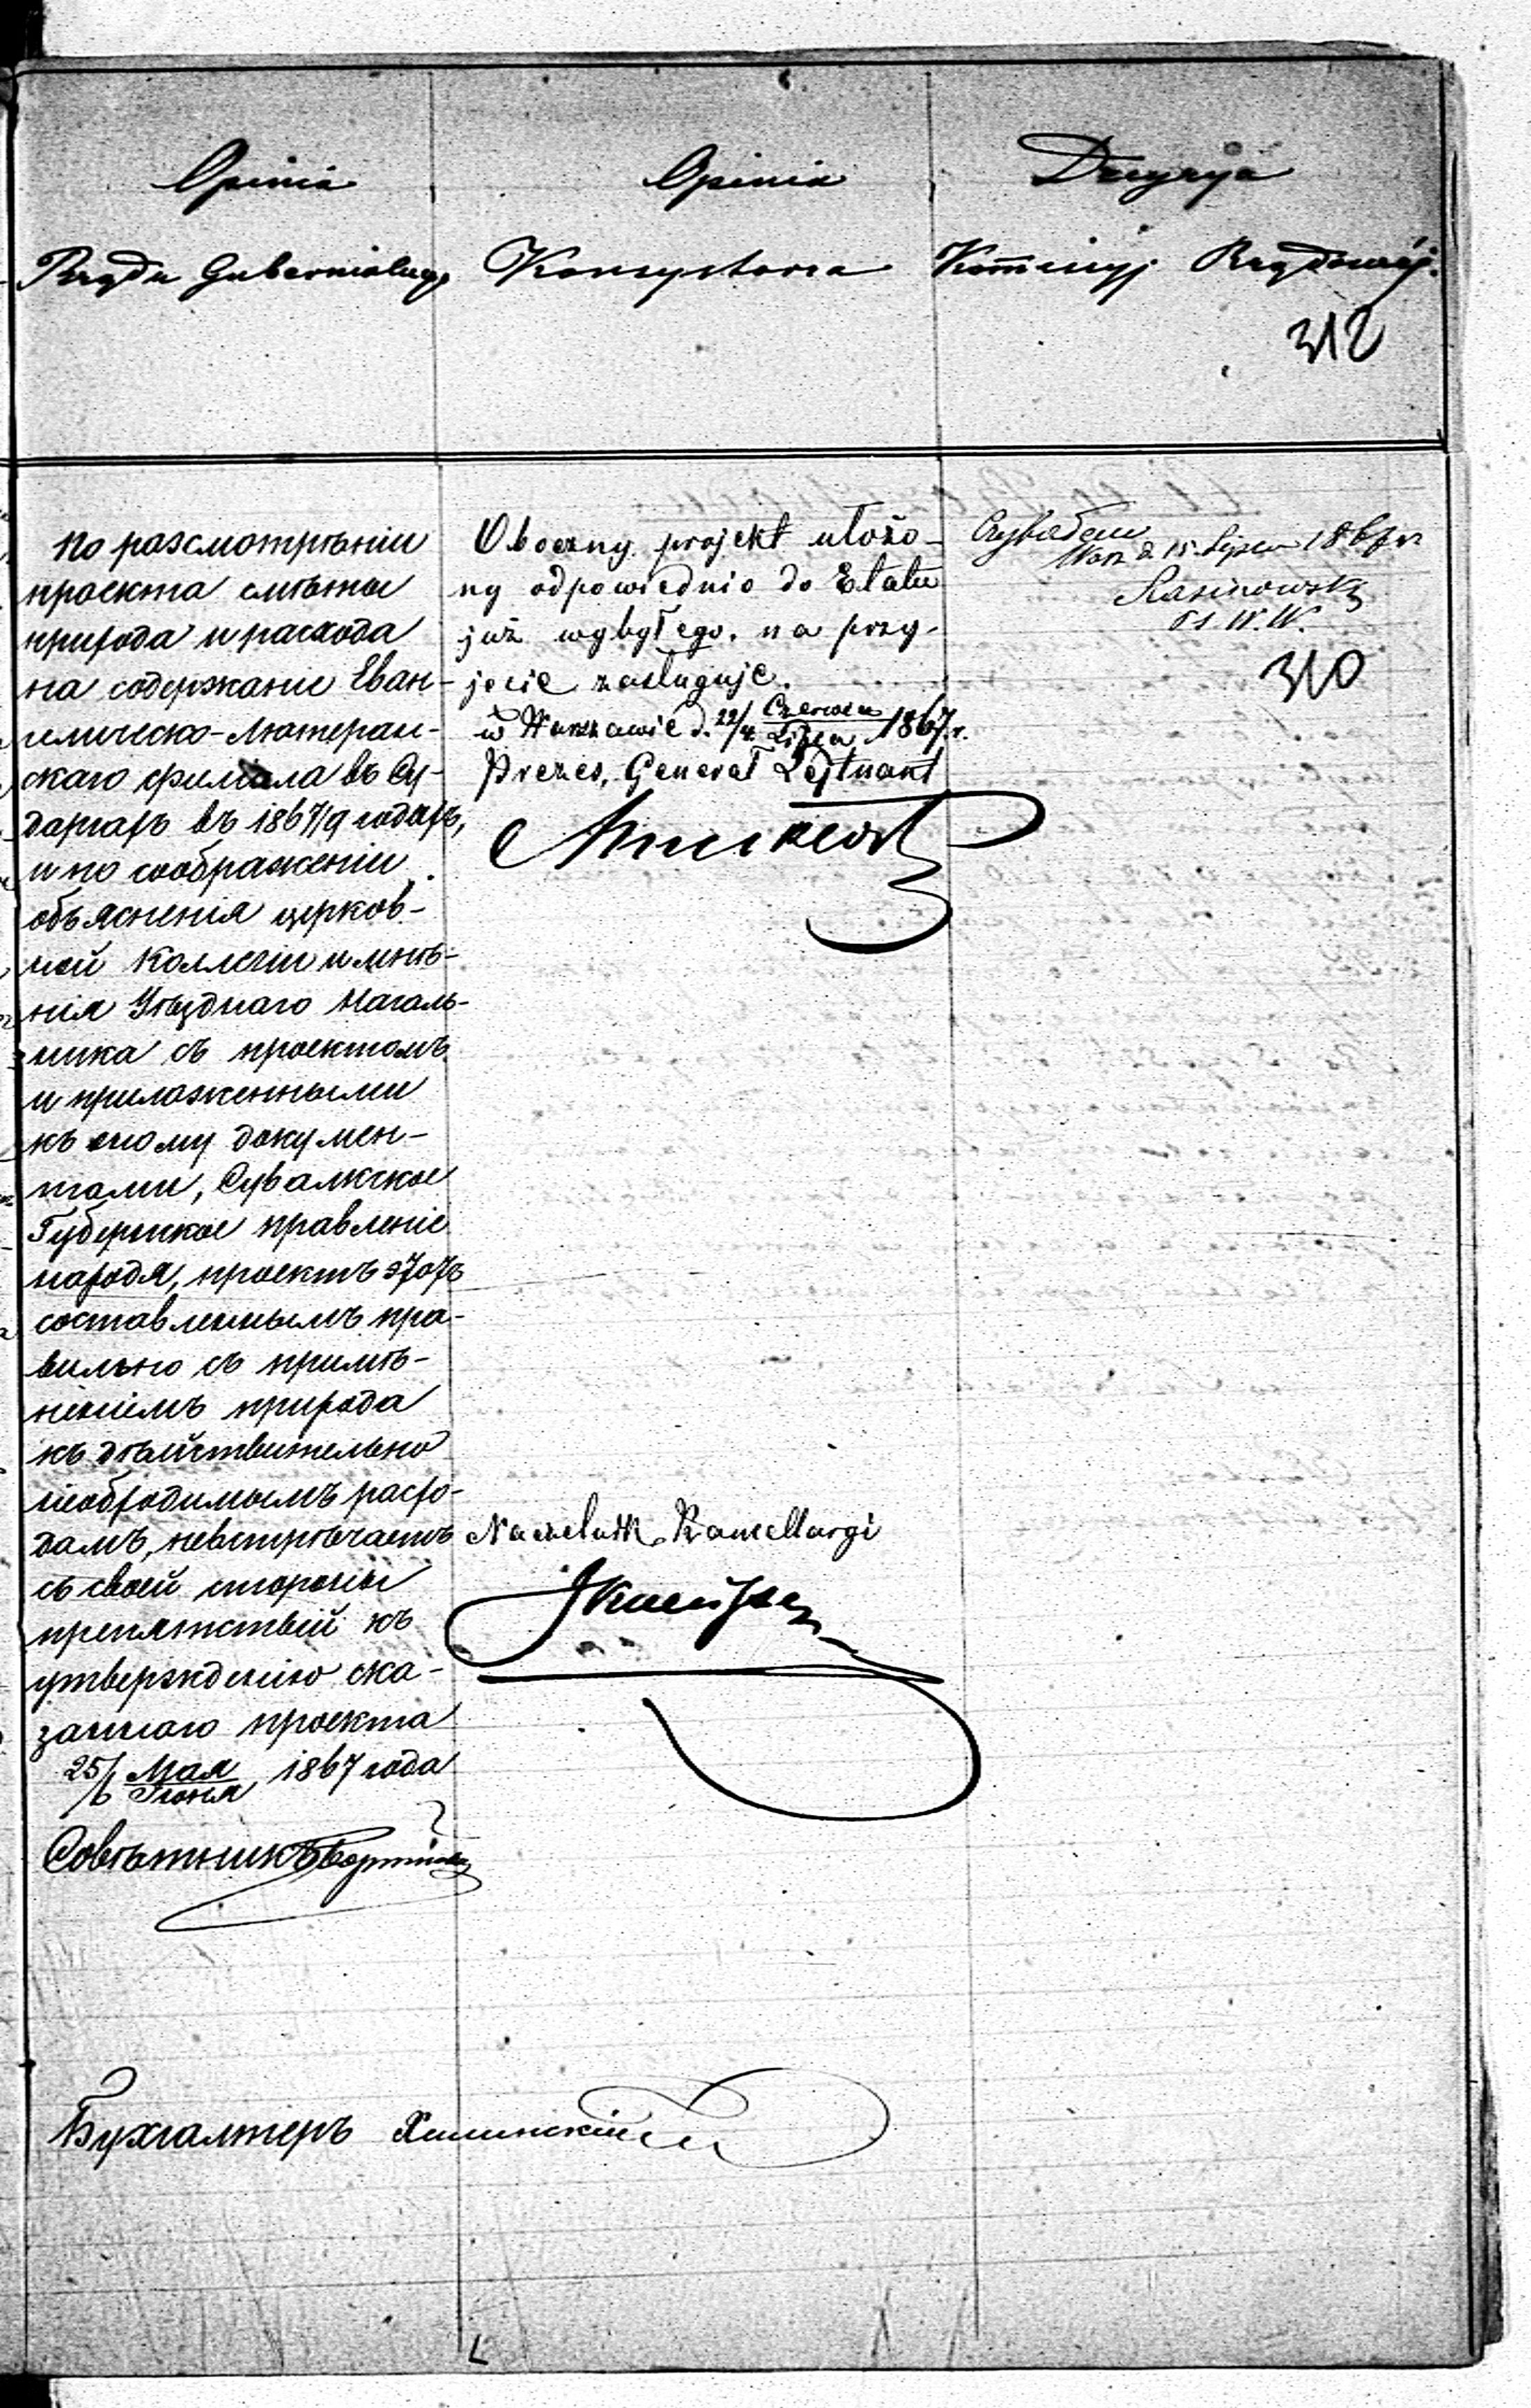 Opinia
Rządu Gubernialnego
Opinia
Konsystorza
Decyzyja
Kommisyj Rządowéj.
312
По разсмотрѣніи
проекта смѣты
прихода и расхода
на содержаніе Еван-
гелическо-Лютеран-
скаго филіала въ Су-
даргахъ въ 1867/9 годахъ,
и по соображеніи
объясненія церков-
ной Коллегіи и мнѣ-
нія Уѣзднаго Началь-
ника съ проектомъ
и приложенными
къ оному докумен-
тами, Сувалкское
Губернское правленіе
находя, проектъ этотъ
составленнымъ пра-
вильно съ примѣ-
неніемъ прихода
къ дѣйствительно
необходимымъ расхо-
дамъ, невстрѣчаетъ
съ своей стороны
препятствій къ
утвержденію ска-
заннаго проекта
25/6 Мая/Іюня 1867 года
Совѣтникъ
Бухгалтеръ
Oboczny projekt ułożo-
ny odpowiednio do Etatu
już wybyłego, na przy-
jęcie zasługuje.
w Warszawie d. 22/4 Czerwca/Lipca 1867 r.
Prezes, Generał Lejtnant
Naczelnik Kancellaryi
Warsz d. 15 Lipca 1867 r
310